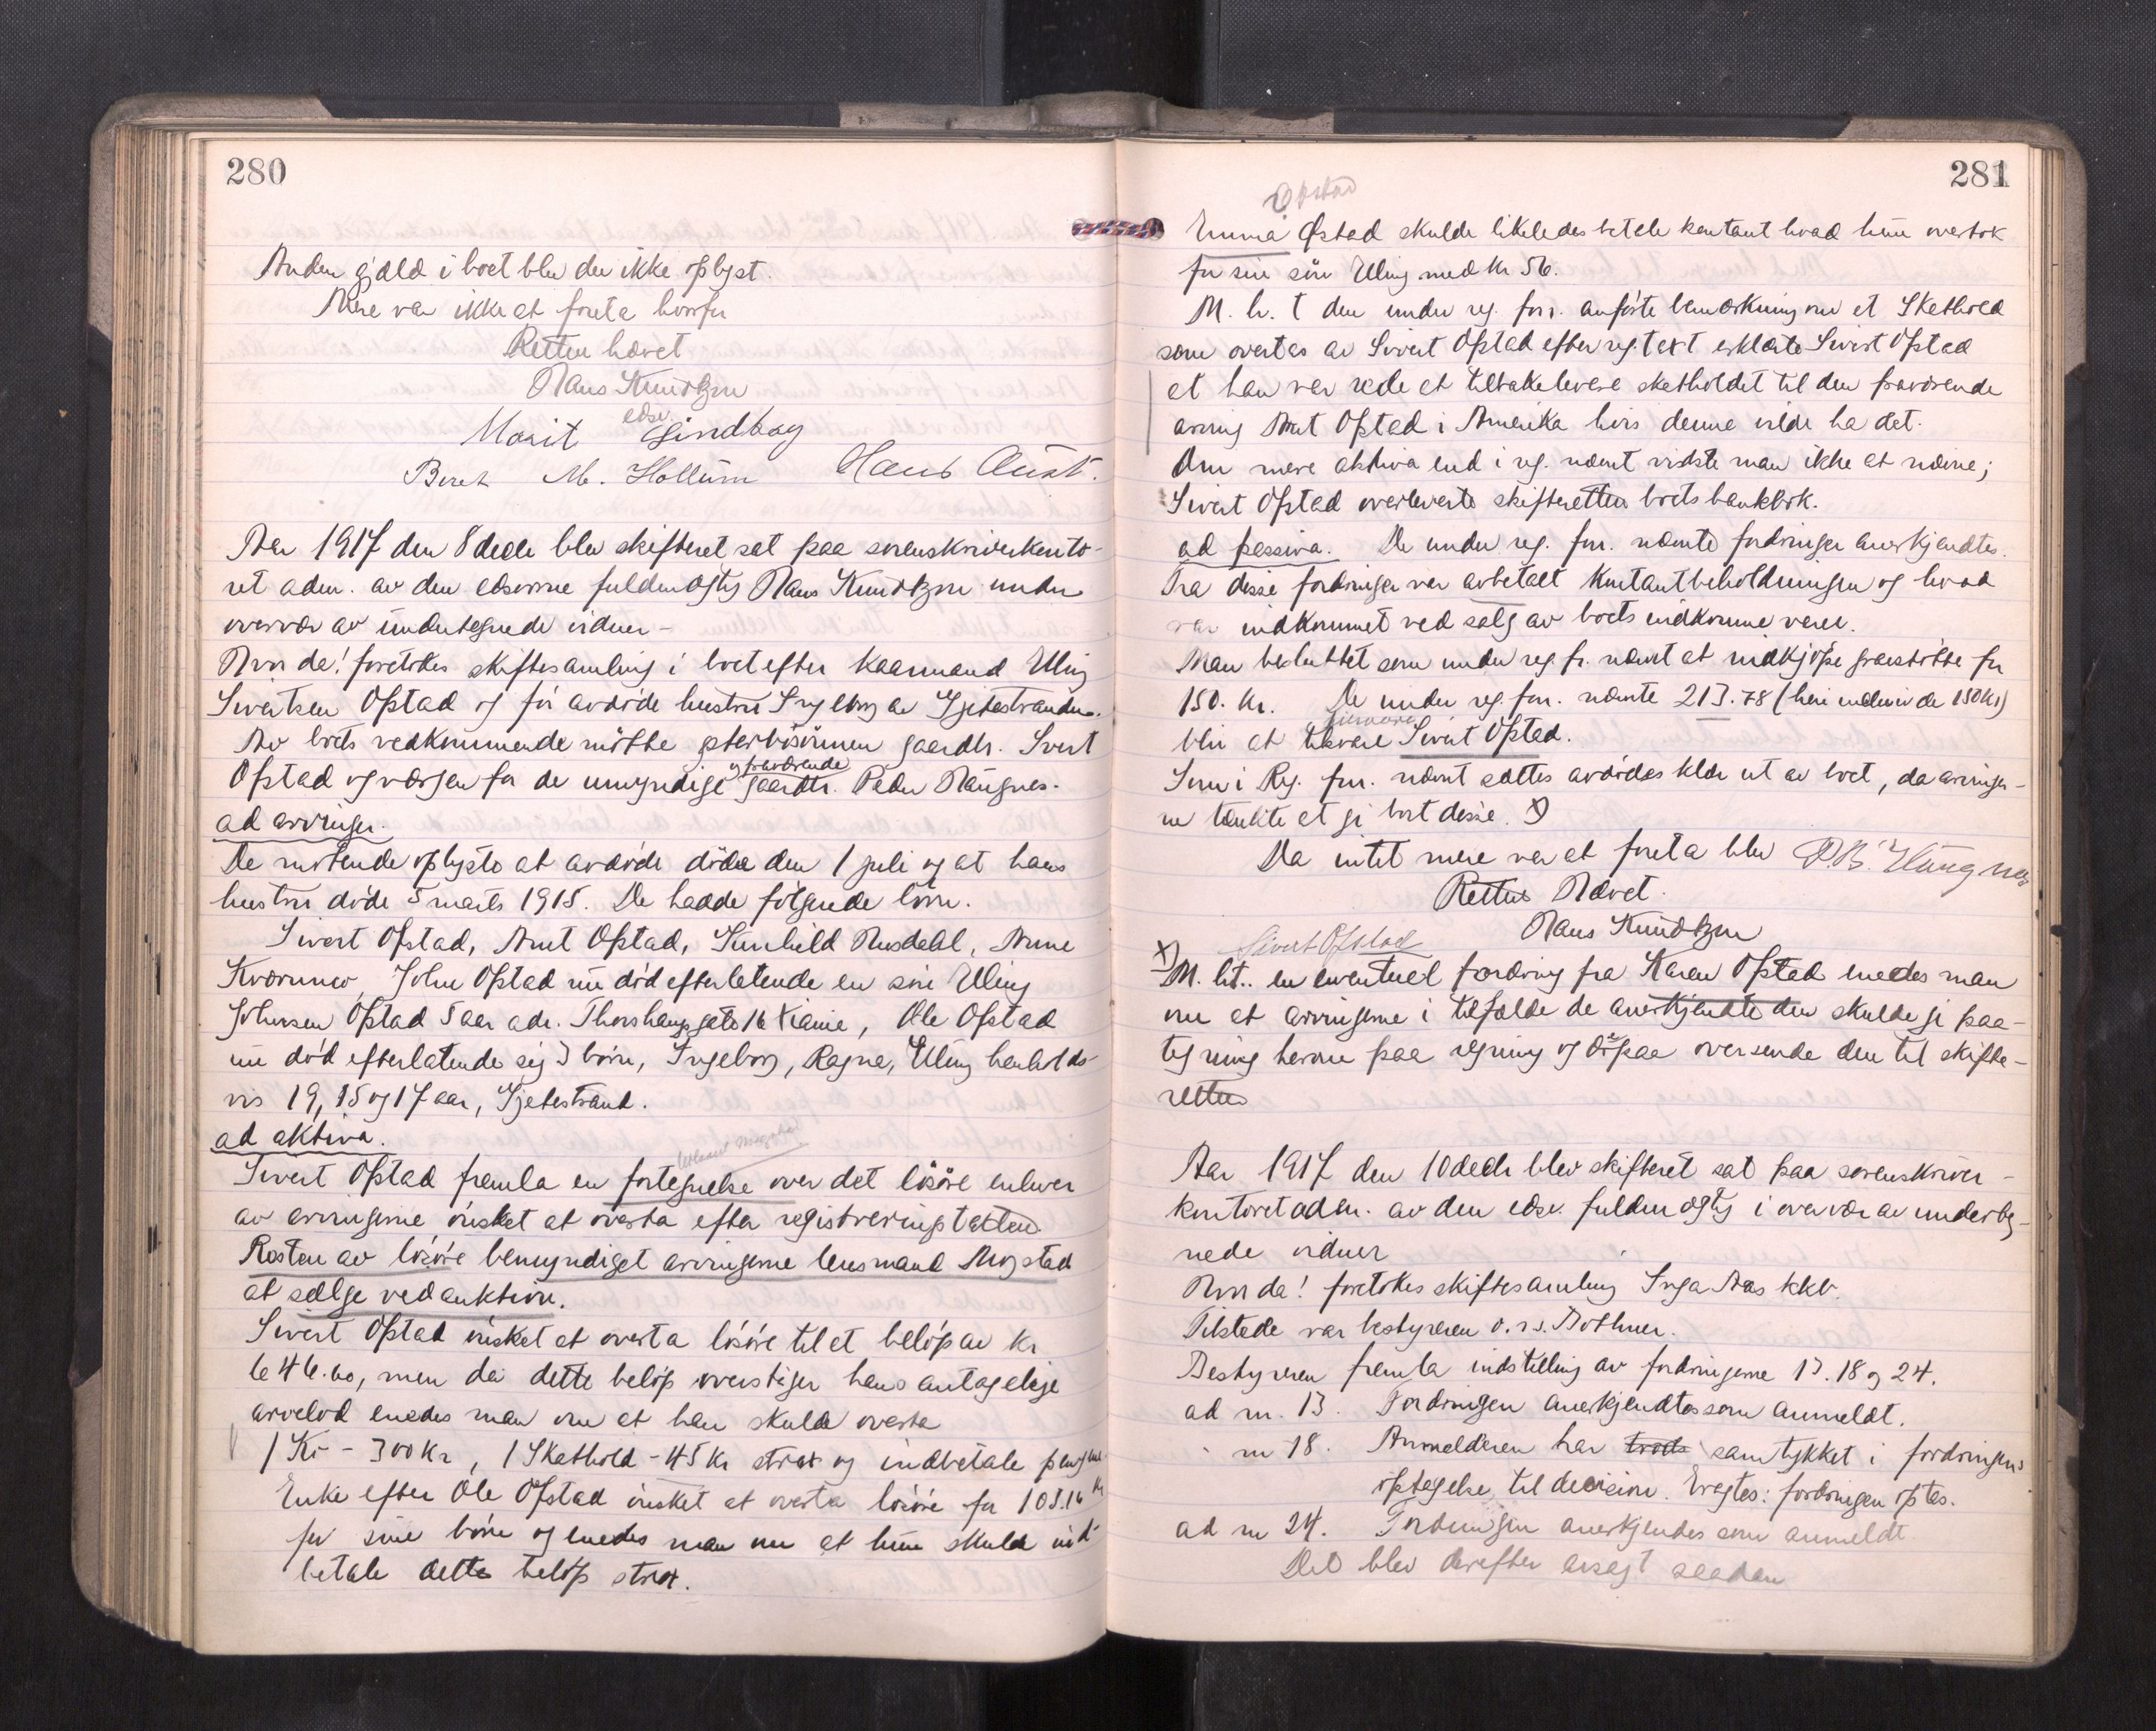 280
Anden gjæld i boet blev der ikke oplyst.
Mere var ikke at foreta hvorfor
Retten hævet
Hans Knudtzon
edsv.
Marit Lindbag
Beret M. Hollum Hans Aust.
Aar 1917 den 8 decbr blev skifteret sat paa sorenskriverkonto-
ret adm. av den edsvorne fuldmægtig Hans Knudtzon under
overvær av undertegnede vidner-
Hvor da! foretokes skiftesamling i boet efter kaarmand Elling
Sivertsen Opstad og før avdøde hustru Ingeborg av Gjetestranden.
Av boets vedkommende møtte sterbosønnen gaardbr. Sivert
og fraværende
Opstad og værgen for de umyndige gaardbr. Peder Haugnes.
ad arvinger.
De møtende oplyste at avdøde døde den 1 juli og at hans
hustru døde 5 marts 1915. De hadde følgende børn.
Sivert Opstad, Arnt Opstad, Gunhild Husdahl, Anne
Kværnmo, John Opstad nu død efterlatende en søn Elling
Johnsen Opstad 5 aar adr. Thorshaugsgate 16 Xiania, Ole Opstad
nu død efterlatende sig 3 børn, Ingeborg, Ragna, Elling henholds-
vis 19, 15 og 17 aar, Gjetestrand.
ad aktiva.
lensmand Mogstad
Sivert Opstad fremla en fortegnelse over det løsøre enhver
av arvingerne ønsket at overta efter registreringstakten
Resten av løsøre bemyndiget arvingerne lensmand Mogstad
at sælge ved auktion.
Sivert Opstad ønsket at overta løsøre til et beløp av kr
646.60, men da dette beløp overstiger hans antagelige
arvelod enedes man om at han skulde overta
1 Ko - 300 kr, 1 Skathold - 45 kr strax og indbetale pengene
Enke efter Ole Opstad ønsket at overta løsøre for 105.16 kr
for sine børn og enedes man om at hun skulde ind-
betale dette beløp strax.
281
Opstad
Emma Østad skulde likeledes betale kontant hvad hun overtok
for sin søn Elling med kr 56.
M. h. t den under reg. forr. anførte bemærkning om et Skathold
som overtas av Sivert Opstad efter reg. takst erklærte Sivert Opstad
at han var rede at tilbakelevere skatholdet til den fraværende
arving Arnt Opstad i Amerika hvis denne vilde ha det.
Om mere aktiva end i reg. nævnt vidste man ikke at nævne;
Sivert Opstad overleverte skifteretten boets bankbok.
ad passiva. De under reg. forr. nævnte fordringer anerkjendtes.
Fra disse fordringer var avbetalt kontantbeholdningen og hvad
var indkommet ved salg av boets indkomne varer.
Man besluttet som under reg. fr. nævnt at indkjøpe gravstøtte for
150. kr. De under reg. forr. nævnte 213.78 (heri inclusive de 150 kr)
blir at tilsvare Sivert Opstad.
Som i Reg. forr. nævnt sattes avdødes klær ut av boet, da arvinger-
ne tænkte at gi bort disse. X)
Da intet mere var at foreta blev P.B. Haugnes
Retten Hævet.
Hans Knudtzon
Sivert Opstad
X) M. h.t.. en eventuel fordring fra Karen Opstad enedes man
om at arvingerne i tilfælde de anerkjendte den skulde gi paa-
tegning herom paa regning og derpaa oversende den til skifte-
retten
Aar 1917 den 10 decbr blev skifteret sat paa sorenskriver-
kontoret adm. av den edsv. fuldmægtig i overvær av underteg-
nede vidner
Hvor da! foretokes skiftesamling Inga Aas kkb.
Tilstede var bestyreren o.r.s. Bothner.
Bestyreren fremla indstilling av fordringerne 13. 18 og 24.
ad nr. 13. Fordringen anerkjendtes som anmeldt.
- nr 18. Anmelderen har samtykket i fordringens
optagelse til decision. Eragtes: fordringen optas.
ad nr 24. Fordringen anerkjendes som anmeldt
Det blev derefter avsagt saadan